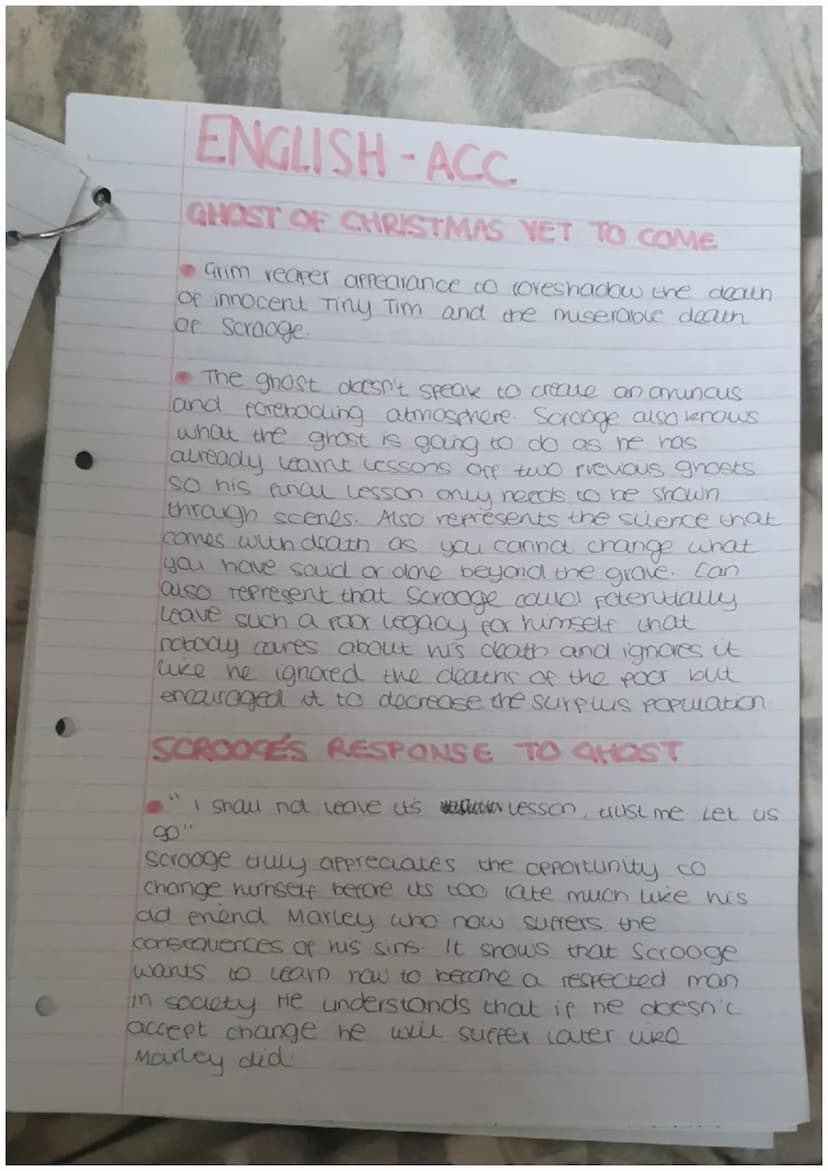 ENGLISH - ACC
GHOST OF CHRISTMAS YET TO COME
• Grim reaper appearance to foreshadow the death
of innocent Tiny Tim and the miserable death
of Scrooge.
• The ghost doesn't speak to create an ominous
and foreboding atmosphere. Scrooge also knows
what the ghost is going to do as he has
already learnt lessons off two previous ghosts
so his final lesson only needs to be shown
through scenes. Also represents the silence that
comes with death as you cannot change what
you have said or done beyond the grave. Can
also represent that Scrooge could potentially
leave such a poor legacy for himself that
nobody cares about his death and ignores it
like he ignored the deaths of the poor but
encouraged it to decrease the surplus population.
SCROOGE'S RESPONSE TO GHOST
• "I shall not leave its lesson, trust me let us
go"
Scrooge truly appreciates the opportunity to
change himself before its too late much like his
old friend Marley who now suffers the
consequences of his sins. It shows that Scrooge
wants to learn how to become a respected man
in society He understands that if he doesn't
accept change he will suffer later like
Marley did.